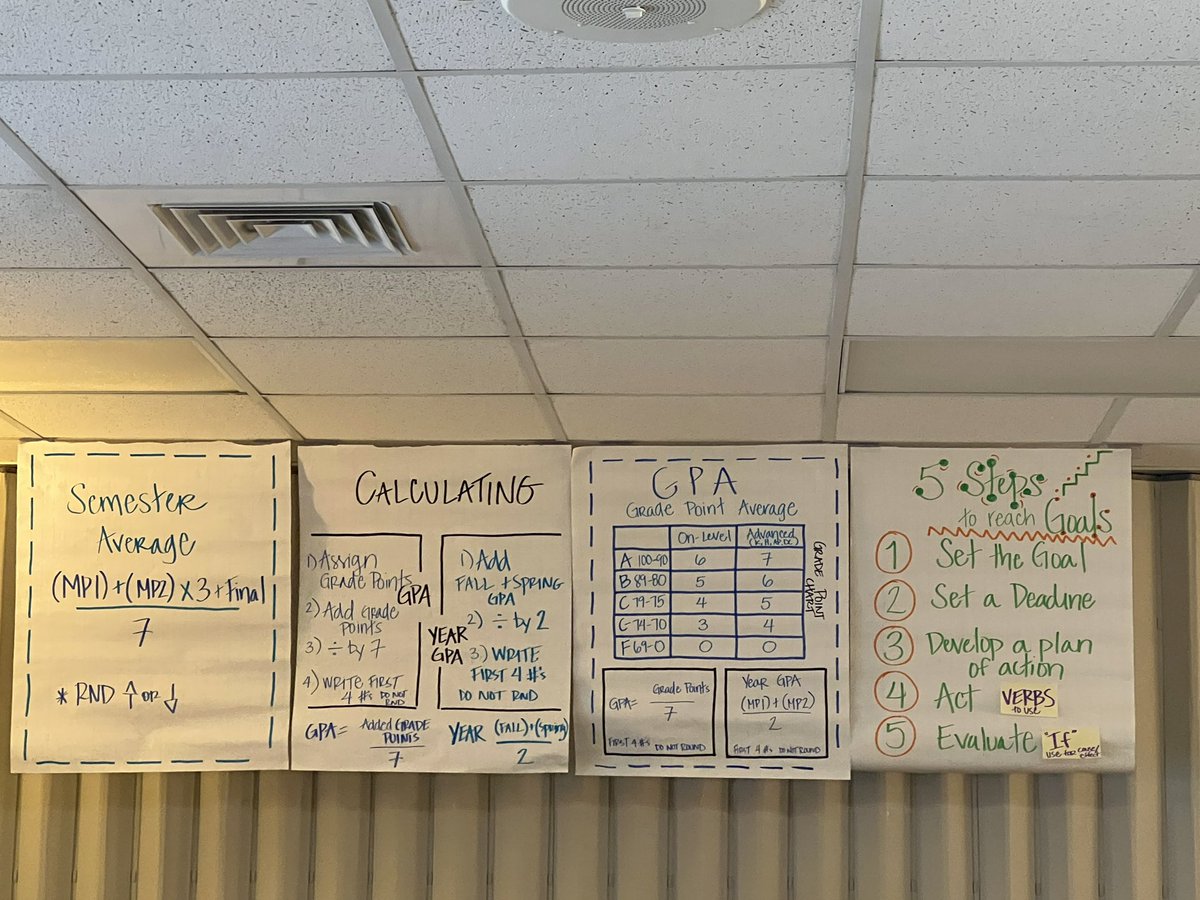 Semester
Average
(MP1)+(MP2)×3+Final
7
* RND ↑ or ↓
CALCULATING
1) Assign
Grade Points
2) Add Grade
Points
3) ÷ by 7
4) WRITE FIRST
4 #'s DO NOT
RND
GPA
1) Add
FALL + SPRING
GPA
2) ÷ by 2
3) WRITE
FIRST 4 #'s
DO NOT RND
YEAR
GPA
GPA= Added GRADE
POINTS
7
YEAR (FALL)+(Spring)
2
GPA
Grade Point Average
On-Level Advanced
A 100-90 6 7
B 89-80 5 6
C 79-75 4 5
C- 74-70 3 4
F 69-0 0 0
GRADE POINT
CHART
GPA= Grade Points
7
FIRST 4 #'s DO NOT ROUND
Year GPA
(MP1)+(MP2)
2
FIRST 4 #'s DO NOT ROUND
5 Steps
to reach Goals
1 Set the Goal
2 Set a Deadine
3 Develop a plan
of action
4 Act VERBS
to use
5 Evaluate "If"
use for cause/
effect